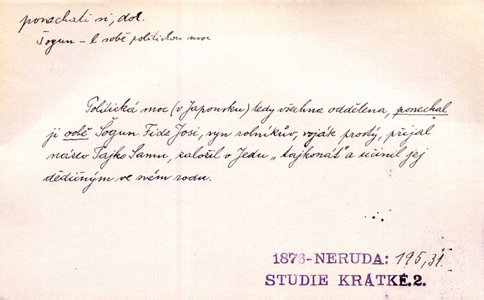 ponechati si, dok.
Šogun – k sobě politickou moc
Politická moc (v Japonsku) tedy všechna oddělena, ponechal
ji sobě Šogun Fide Josi, syn rolníkův, voják prostý, přijal
název Tajko Samu, založil v Jedu „tajkonát" a učinil jej
dědičným ve svém rodu.
1876-NERUDA: 195,31.
STUDIE KRÁTKÉ.2.